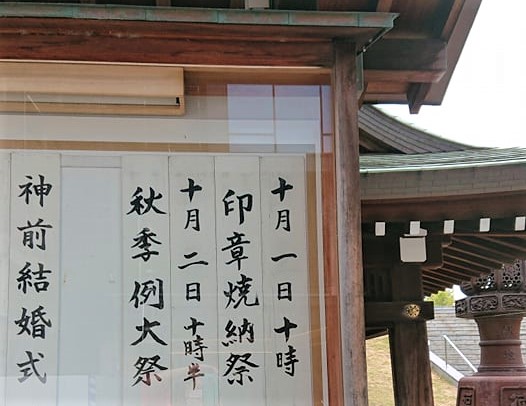 十月一日十時
印章焼納祭
十月二日十時半
秋季例大祭
神前結婚式